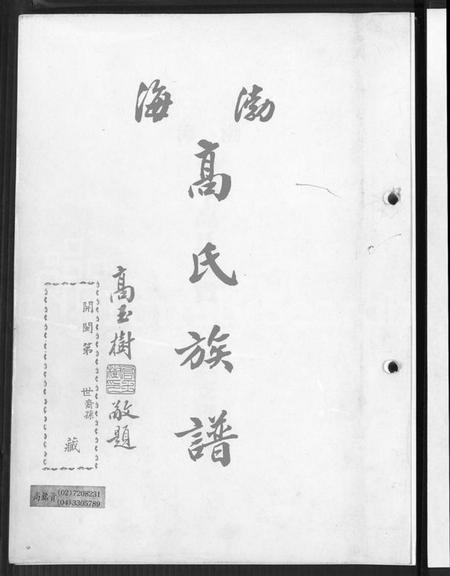 渤海
高氏族譜
高玉樹
敬題
開閩第　世裔孫
藏
(02)7208231
(04)3305789